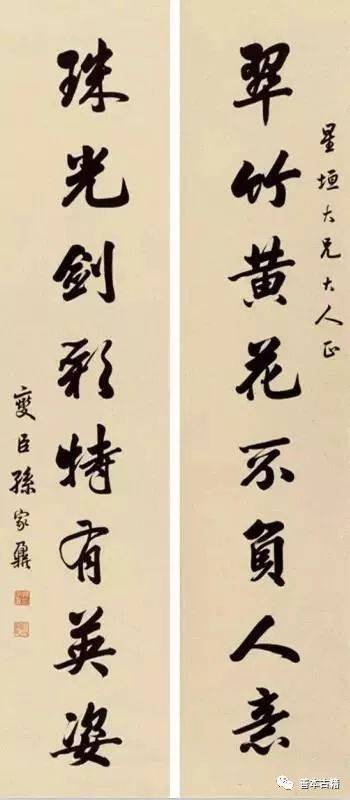 星垣大兄大人正
翠竹黄花不負人意
珠光劍彩特有英姿
燮臣孫家鼐
善本古籍